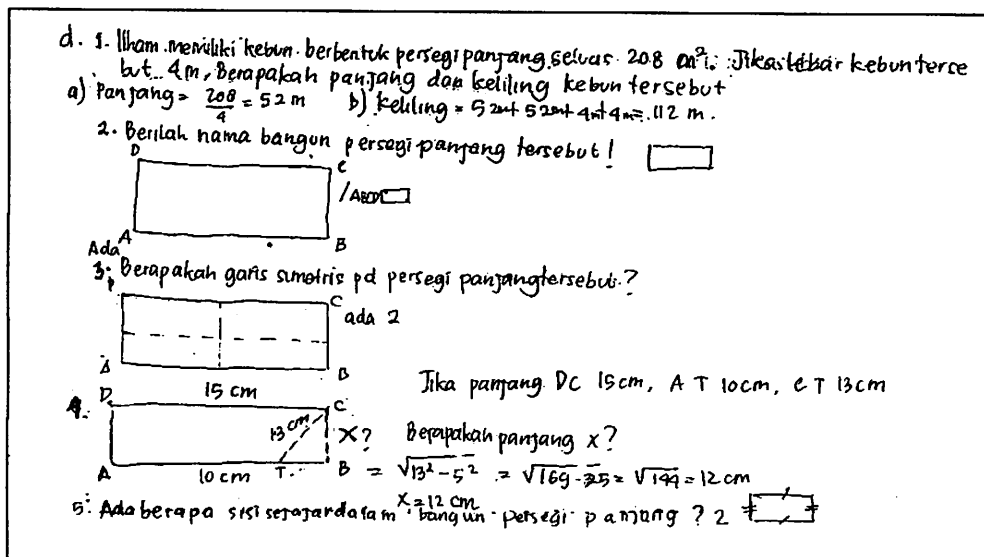 d. 1. Ilham memiliki kebun berbentuk persegi panjang seluas 208 m². Jika lebar kebun terse
but 4m, Berapakah panjang dan keliling kebun tersebut
a) Panjang = 208/4 = 52 m b) Keliling = 52m+ 52m+ 4m+4m= 112 m.
2. Berilah nama bangun persegi panjang tersebut!
D C
/ABCD
A B
Ada
3. Berapakah garis simetris pd persegi panjang tersebut?
C
ada 2
A B
15 cm Jika panjang DC 15cm, AT 10cm, CT 13cm
4. D C
13 cm X? Berapakah panjang x?
A 10 cm T B = √13²-5² = √169-25 = √144 = 12 cm
x = 12 cm
5. Ada berapa sisi sejajar dalam bangun persegi panjang? 2